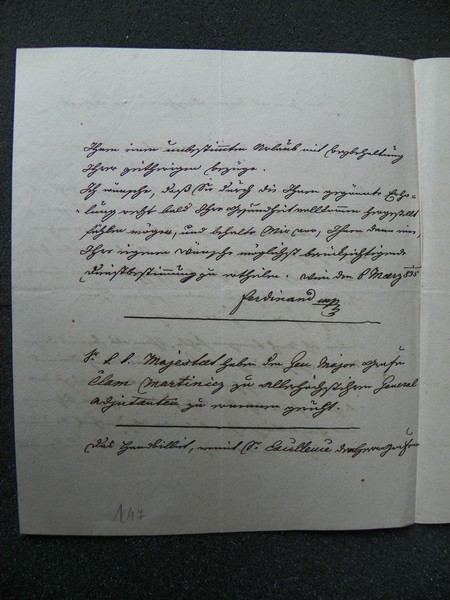 Ihnen einen unbestimmten Urlaub mit Beybehaltung
Ihrer zeitherigen Bezüge.
Ich wünsche, daß Sie durch die Ihnen gegönnte Erho-
lung recht bald Ihre Gesundheit vollkommen hergestellt
fühlen mögen, und behalte Mir vor, Ihnen dann eine,
Ihre eigenen Wünsche möglichst berücksichtigende
Dienstbestimmung zu ertheilen. Wien den 6 März 835
Ferdinand mp
Sr. k. k. Majestaet haben den Gen. Major Grafen
Clam Martinicz zu Allerhöchstihrem General
Adjutanten zu ernennen geruht.
Das Handbillet, womit Sr. Excellenz der Herr Graf
147